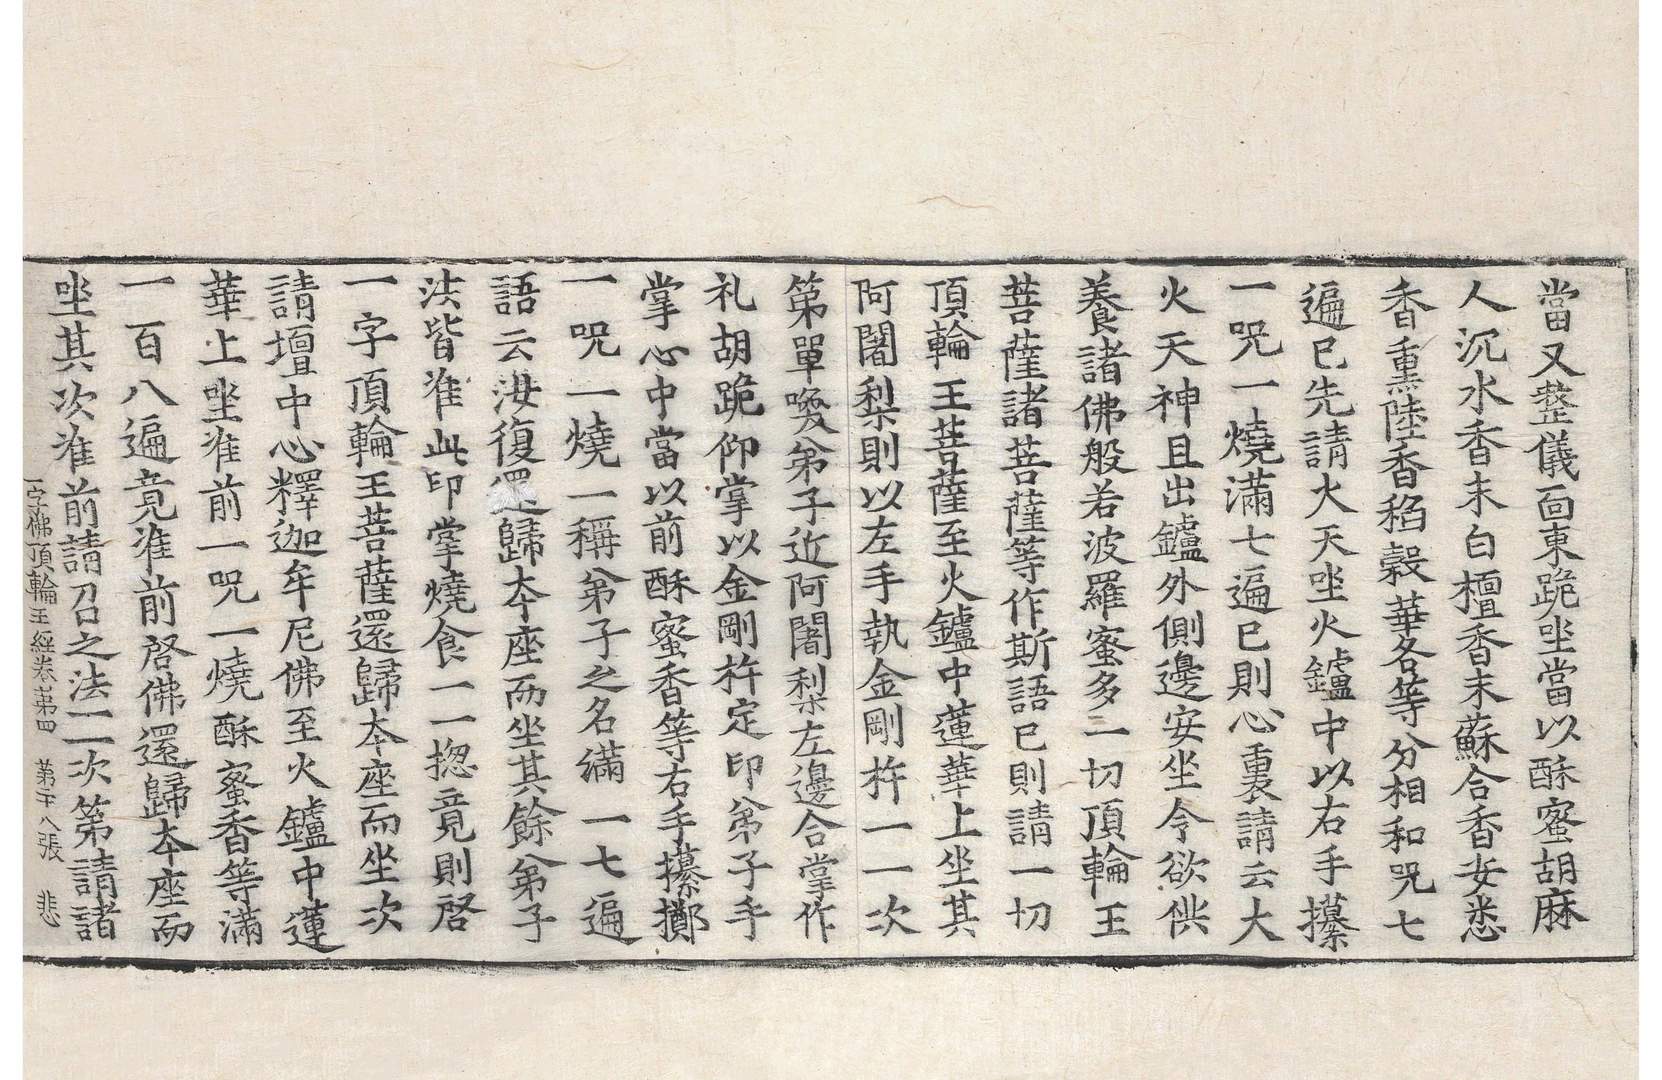 當又整儀面東跪坐當以酥蜜胡麻
人沉水香末白檀香末蘇合香安悉
香熏陸香稻穀華各等分相和呪七
遍已先請火天坐火鑪中以右手攥
一呪一燒滿七遍已則心裏請云大
火天神且出鑪外側邊安坐今欲供
養諸佛般若波羅蜜多一切頂輪王
菩薩諸菩薩等作斯語已則請一切
頂輪王菩薩至火鑪中蓮華上坐其
阿闍梨則以左手執金剛杵一一次
第單喚弟子近阿闍梨左邊合掌作
礼胡跪仰掌以金剛杵定印弟子手
掌心中當以前酥蜜香等右手攥擲
一呪一燒一稱弟子之名滿一七遍
語云汝復還歸本座而坐其餘弟子
法皆准此印掌燒食一一揔竟則啓
一字頂輪王菩薩還歸本座而坐次
請壇中心釋迦牟尼佛至火鑪中蓮
華上坐准前一呪一燒酥蜜香等滿
一百八遍竟准前啓佛還歸本座而
坐其次准前請召之法一一次第請諸
一字佛頂輪王經卷第四 第十八張 悲